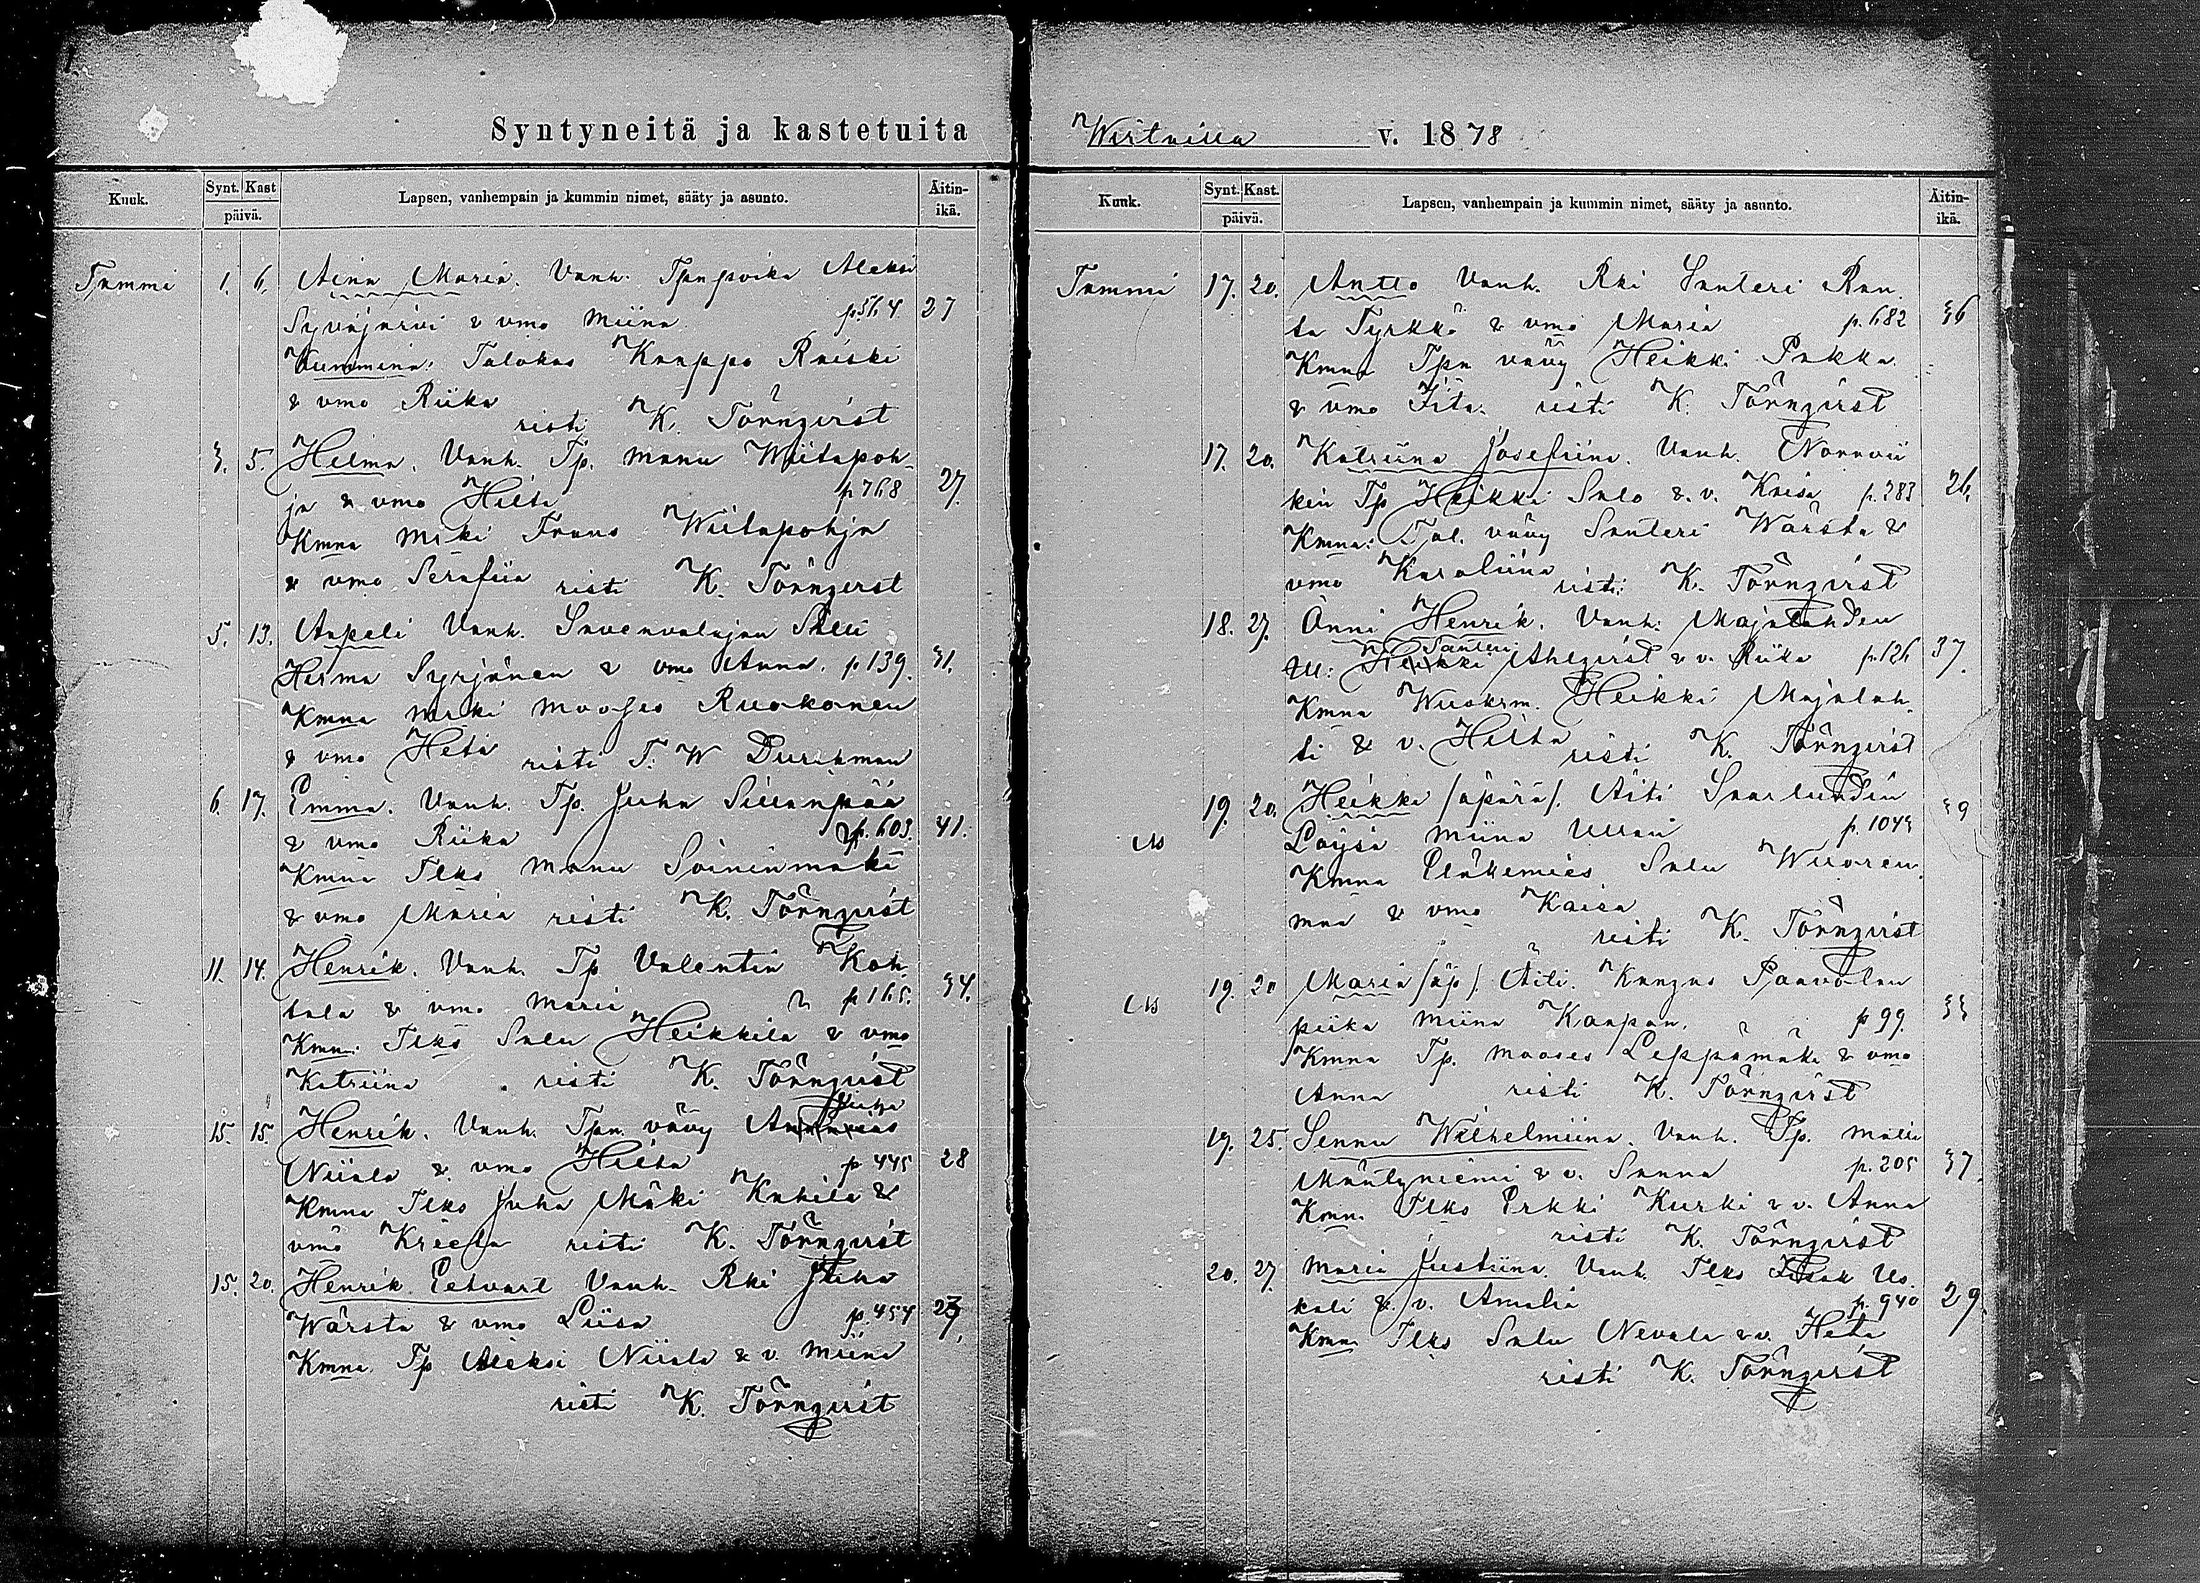 Syntyneitä ja kastetuita
Kuuk. Synt. Kast päivä. Lapsen, vanhempain ja kummin nimet, sääty ja asunto. Äitin-ikä.
Tammi 1. 6. Aina Maria. Vanh. Tpnpoika Aleksi
Syväjärvi & vmo Miina p.564 27
Kummina: Talokas Kaappo Raiski
& vmo Riika
risti K. Törnqvist
3. 5. Hilma. Vanh. Tp. Manu Wiitapoh-
ja & vmo Hilta p 768 27.
Kmna Mäki Frans Wiitapohja
& vmo Serafiia risti K. Törnqvist
5. 13. Aapeli Vanh. Savenvalajan
Herma Syrjänen & vmo Anna. p 139. 31.
Kmna Mäki Mooses Ruokonen
& vmo Heta risti T. W Durchman
6. 17. Emma. Vanh. Tp. Juha Sillanpää
& vmo Riika p. 603. 41.
Kmna Tlks Manu Soininmäki
& vmo Maria risti K. Törnqvist
11. 14. Henrik. Vanh. Tp Valentin Koh-
tala & vmo Maria p 165. 34.
Kmn: Tlks Salu Heikkilä & vmo
Katriina risti K. Törnqvist
Juha
15. 15. Henrik. Vanh. Tpn vävy Ananias
Niiala & vmo Hilta p 445 28
Kmna Tlks Juha Mäki Kahila &
vmo Kreeta risti K. Törnqvist
15. 20. Henrik Eetvart Vanh. Rki Juha
Wärsta & vmo Liisa p. 454 23,
Kmna Tp Aleksi Niiala & v. Miina
risti K. Törnqvist
v. 1878
Kuuk. Synt. Kast. päivä. Lapsen, vanhempain ja kummin nimet, sääty ja asunto. Äitin-ikä.
Tammi 17. 20. Antto Vanh. Rki Santeri Ran-
ta Tyrkkö & vmo Maria p. 682 36
Kmna Tpn vävy Heikki Pakka
& vmo Fita. risti K. Törnqvist
17. 20. Katriina Josefiina. Vanh. Norrvii
kin Tp Heikki Salo & v. Kaisa p. 383 26,
Kmna: Tal. vävy Santeri Wärsta &
vmo Karoliina risti: K. Törnqvist
18. 27. Onni Henrik. Vanh: Majalahden
Santeri
M: Heikki Ahlqvist & v. Riika p. 126 37.
Kmna Wuokrm. Heikki Majalah-
ti & v. Hilta risti K. Törnqvist
19. 20. Heikki /äpärä/. Äiti Saarlundin
Löysä Miina Ullan p. 1043 39
Kmna Eläkemies Salu Wuoren
maa & vmo Kaisa
risti K. Törnqvist
19. 20 Maria /äp/. Äiti. Kangas Paavolan
piika Miina Kaapan. p 99. 33
Kmna Tp. Mooses Leppämäki & vmo
Anna risti K. Törnqvist
19. 25. Sanna Wilhelmiina. Vanh. Tp. Matti
Mäntyniemi & v. Sanna p. 205 37.
Kmn. Tlks Erkki Kurki & v. Anna
risti K. Törnqvist
20. 27. Maria Justiina. Vanh. Tlks Iisak Us-
kali & v. Amalia p. 940 29.
Kmn. Tlks Salu Nevala & v. Heta
risti K. Törnqvist